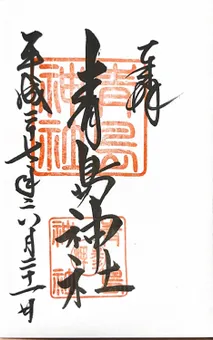 奉拝
青島神社
平成二十七年六月二十一日
青島神社